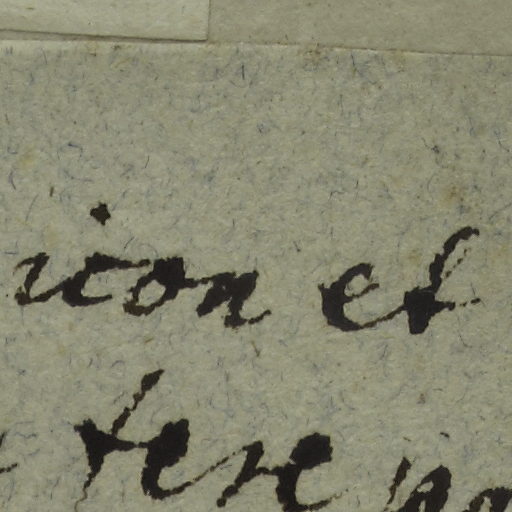 icon et
tere